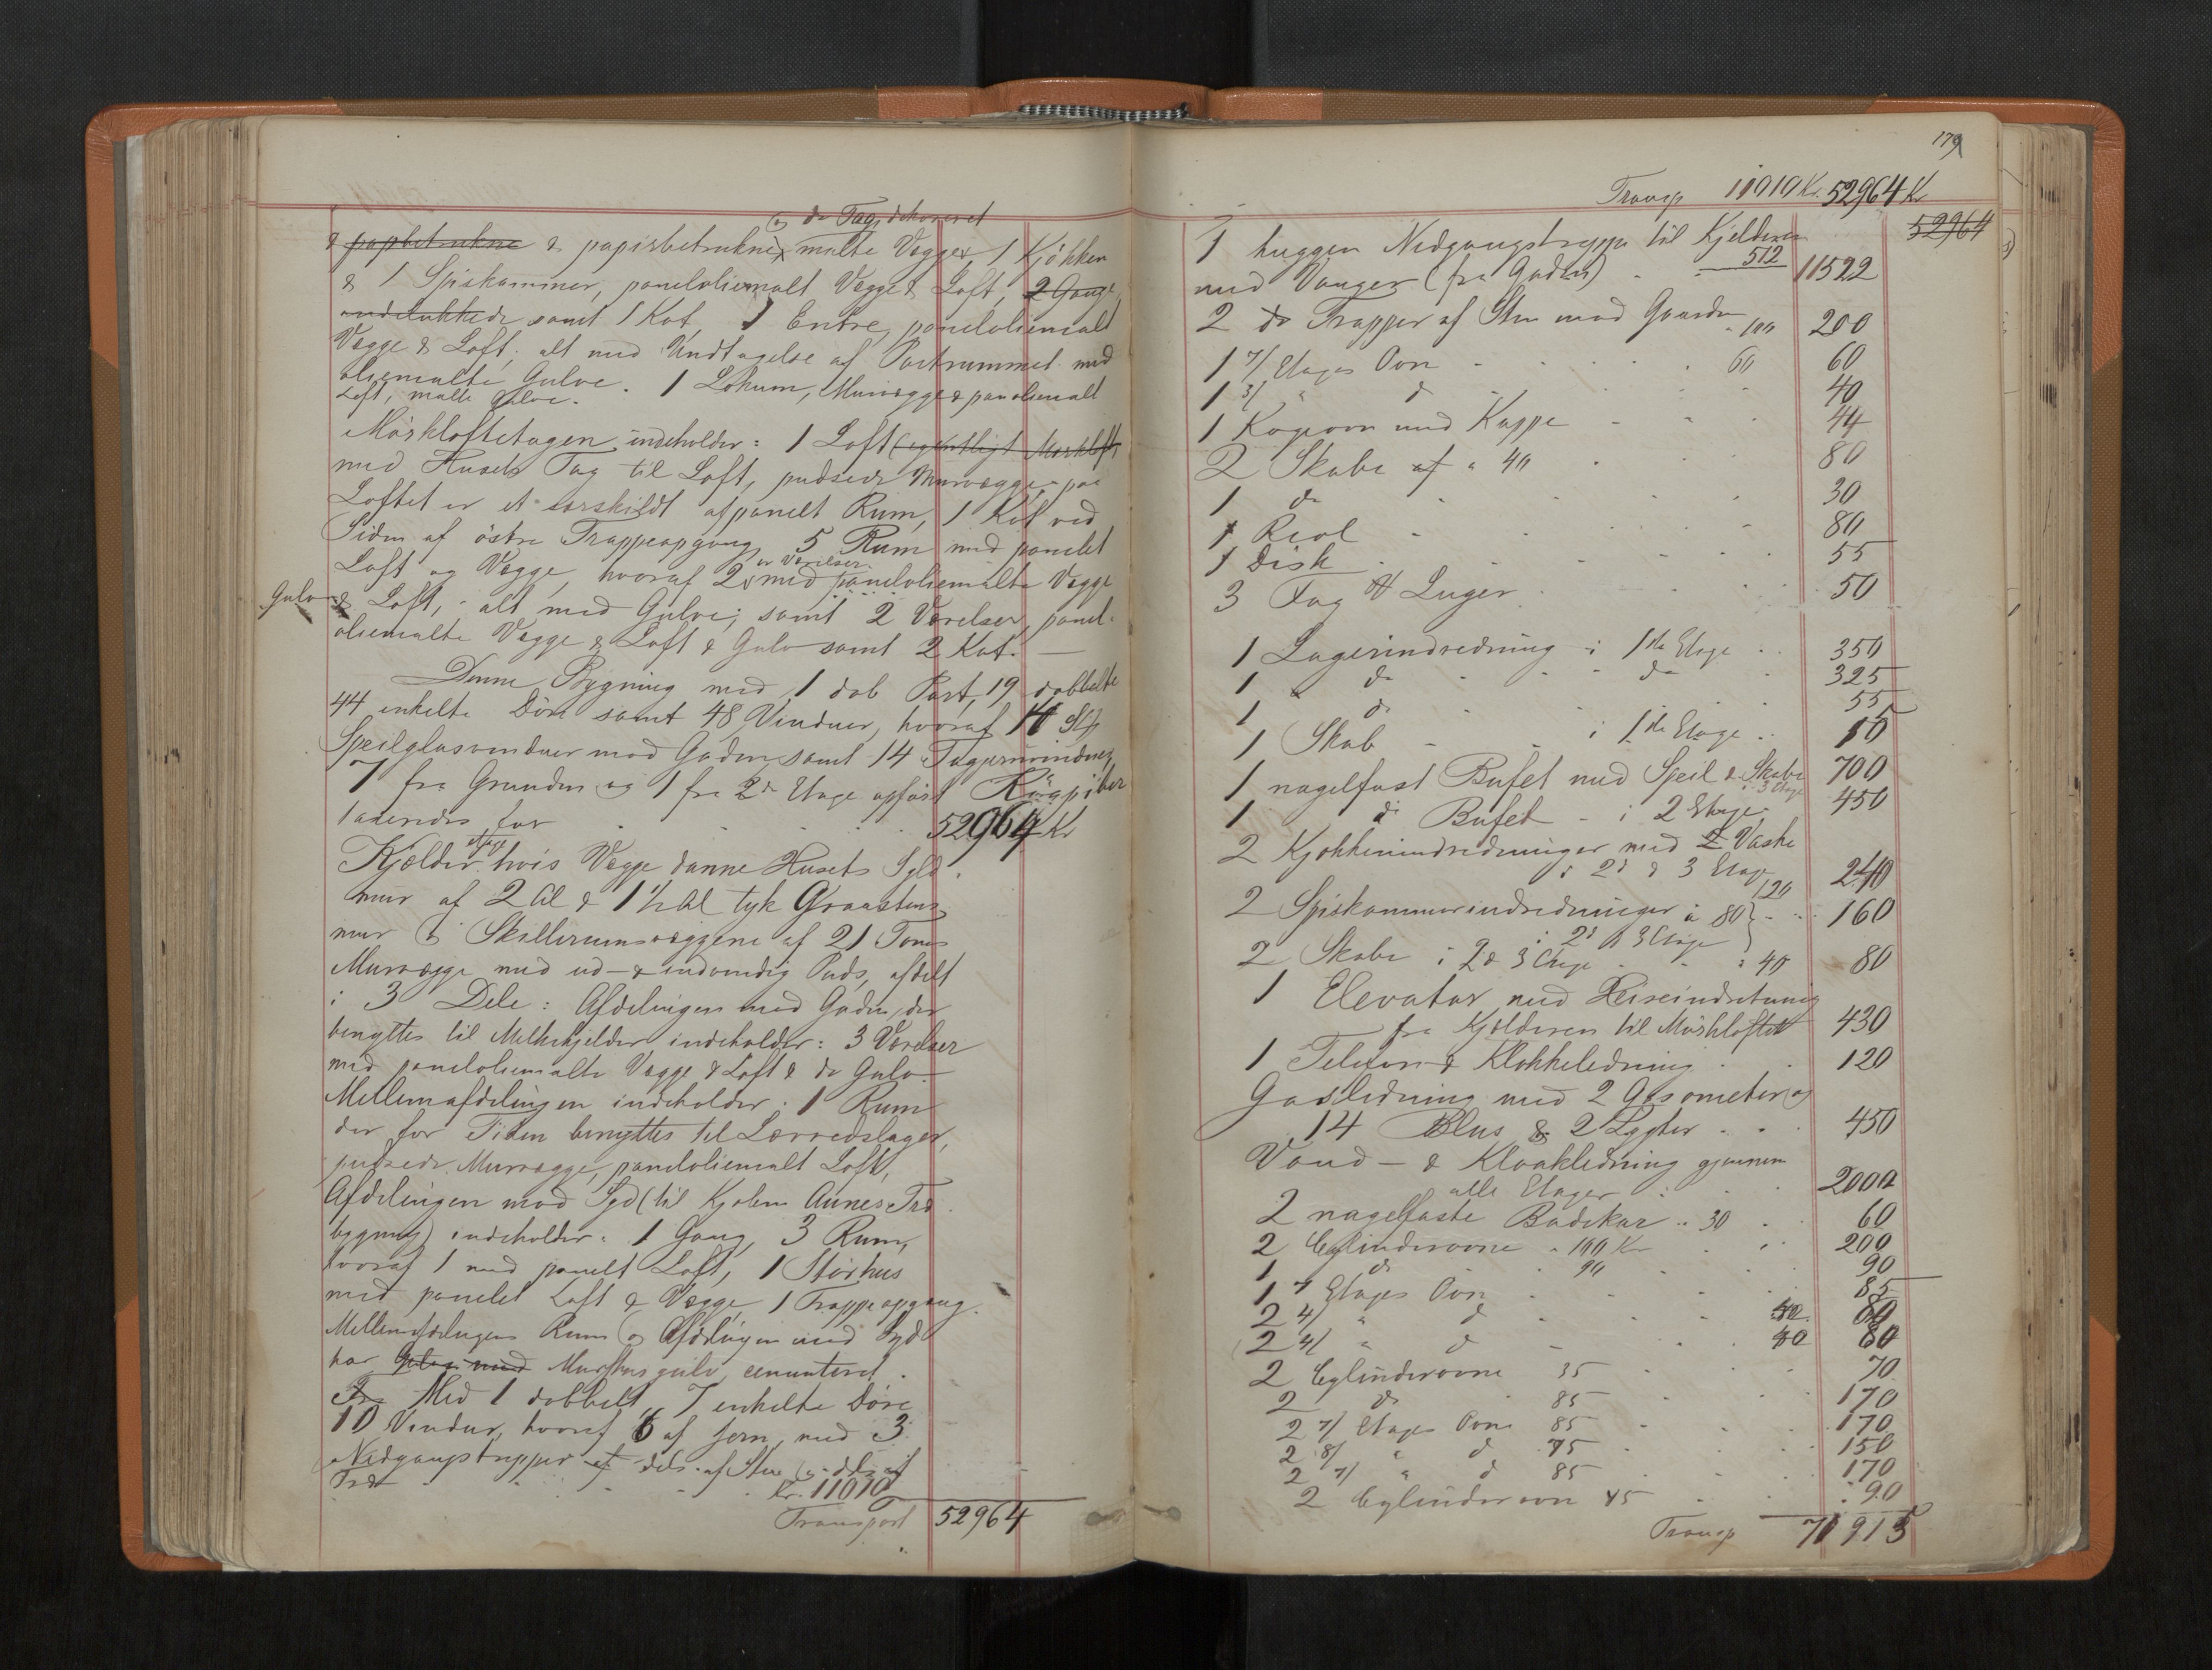 & da Tag, dekoreret
& papbetrukne & papirsbetrukne malte Vægge, 1 Kjøkken
& 1 Spiskammer, paneloliemalt Vægge & Loft, 2 Gange
samt 1 Kot, 1 Entre, paneloliemalt
Vægge & Loft, alt med Undtagelse af Portrummet med
oliemalte Gulve. 1 Lokum, Murvægge & panoliemalt
Loft, malte Gulve.
Mørkloftetagen indeholder: 1 Loft (egentligt Mørkloft
med Husets Tag til Loft, pudsede Murvægge, paa
Loftet er et særskildt afpanelt Rum, 1 Kot ved
Siden af østre Trappeopgang, 5 Rum med panelt
Loft og Vægge, hvoraf 2 er Værelser med paneloliemalte Vægge
Gulv & Loft, alt med Gulve; samt 2 Værelser, panel-
oliemalte Vægge & Loft & Gulv samt 2 Kot. —
Denne Bygning med 1 dob Port, 19 dobbelte
44 enkelte Døre samt 48 Vinduer, hvoraf
Speilglasvinduer mod Gaden, samt 14 Tagjernvinduer,
7 fra Grunden og 1 fra 2de Etage opført Røgpiber
taxeredes for 52964 Kr
Kjælderetage hvis Vægge danne Husets Syld
mur af 2 Al & 1 1/2 Al tyk Graastens
mur & Skillerumsvæggene af 21 Toms
Murvægge med ud- & indvendig Puds, afdelt
i 3 Dele: Afdelingen mod Gaden, der
benyttes til Melkekjelder indeholder: 3 Værelser
med paneloliemalte Vægge & Loft & do Gulv.
Mellemafdelingen indeholder: 1 Rum
der for Tiden benyttes til Lærredslager,
pudsede Murvægge, paneloliemalt Loft,
Afdelingen mod Syd (til Kjøbm Aunes
bygning) indeholder: 1 Gang, 3 Rum,
hvoraf 1 med panelt Loft, 1 Størhus
med panelet Loft & Vægge, 1 Trappeopgang.
Mellemafdelingens Rum og Afdelingen mod Syd
har Murstensgulv cementeret.
Med 1 dobbelt, 7 enkelte Døre
10 Vinduer, hvoraf 6 af Jern, med 3
Nedgangstrapper af dels af Sten og dels af
Træ Kr. 11010
Transport 52964
179
Transp 11010 Kr. 52964 Kr
52964
1 huggen Nedgangstrappe til Kjelderen
med Vanger (fra Gaden) 512 11522
2 do Trapper af Sten mod Gaarden 100 200
1 7/ Etages Ovn 60 60
1 3/ " d 40
1 Kogeovn med Kappe 44
2 Skabe af a 40 80
1 do 30
1 Reol 80
1 Disk 55
3 Fag Luger 50
1 Lagerindredning i 1ste Etage 350
1 do do 325
1 do 55
1 Skab i 1ste Etage 15
1 nagelfast Bufet med Speil & Skabe i 3 Etage 700
1 d Bufet i 2 Etage 450
2 Kjøkkenindredninger med 2 Vaske
i 2d & 3 Etag 120 240
2 Spiskammerindredninger a 80 160
i 2d & 3 Etage
2 Skabe i 2 & 3 Etage a 40 80
1 Elevator med Heiseindretning
fra Kjælderen til Mørkloftet 430
1 Telefon & Klokkeledning 120
Gasledning med 2 Gasometer og
14 Blus & 2 Lygter 450
Vand- & Kloakledning gjennem
alle Etager 2000
2 nagelfaste Badekar a 30 60
2 Cylinderovne a 100 Kr 200
1 d 90 90
1 7 Etages Ovn 85
2 4/ " d 80
2 4/ " d 40 80
2 Cylinderovne 35 70
2 do 85 170
2 7/ Etages Ovne 85 170
2 8/ " d 75 150
2 7/ " d 85 170
2 Cylinderovn 45 90
Transp 71915